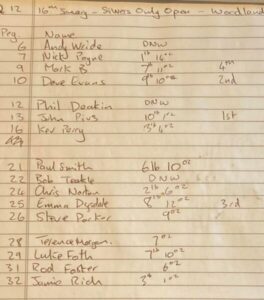 12 16th Sway - Silvers Only Open - Woodland
Peg Name
6 Andy Weide DNW
7 Nick Payne 1lb 14oz
9 Mark B 7lb 11oz 4th
10 Dave Evans 9lb 10oz 2nd
12 Phil Deakin DNW
13 John Pius 10lb 1oz 1st
16 Kev Perry 3lb 4oz
21 Paul Smith 6lb 10oz
22 Rob Teakle DNW
24 Chris Norton 2lb 6oz
25 Emma Dyedale 8lb 12oz 3rd
26 Steve Parker 9oz
28 Terence Morgan. 7oz
29 Luke Foth 7lb 10oz
31 Rod Forter 6oz
32 Jamie Rich 3lb 1oz